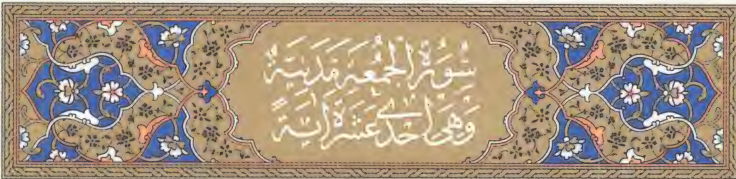 سُورَةُ الْجُمُعَةِ مَدَنِيَّةٌ
وَهِىَ اِحْدٰى عَشْرَةَ اٰيَةً